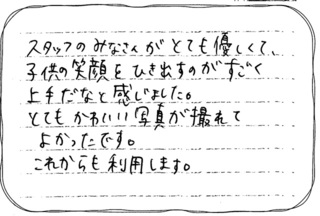 スタッフのみなさんがとても優しくて、
子供の笑顔をひき出すのがすごく
上手だなと感じました。
とてもかわいい写真が撮れて
よかったです。
これからも利用します。